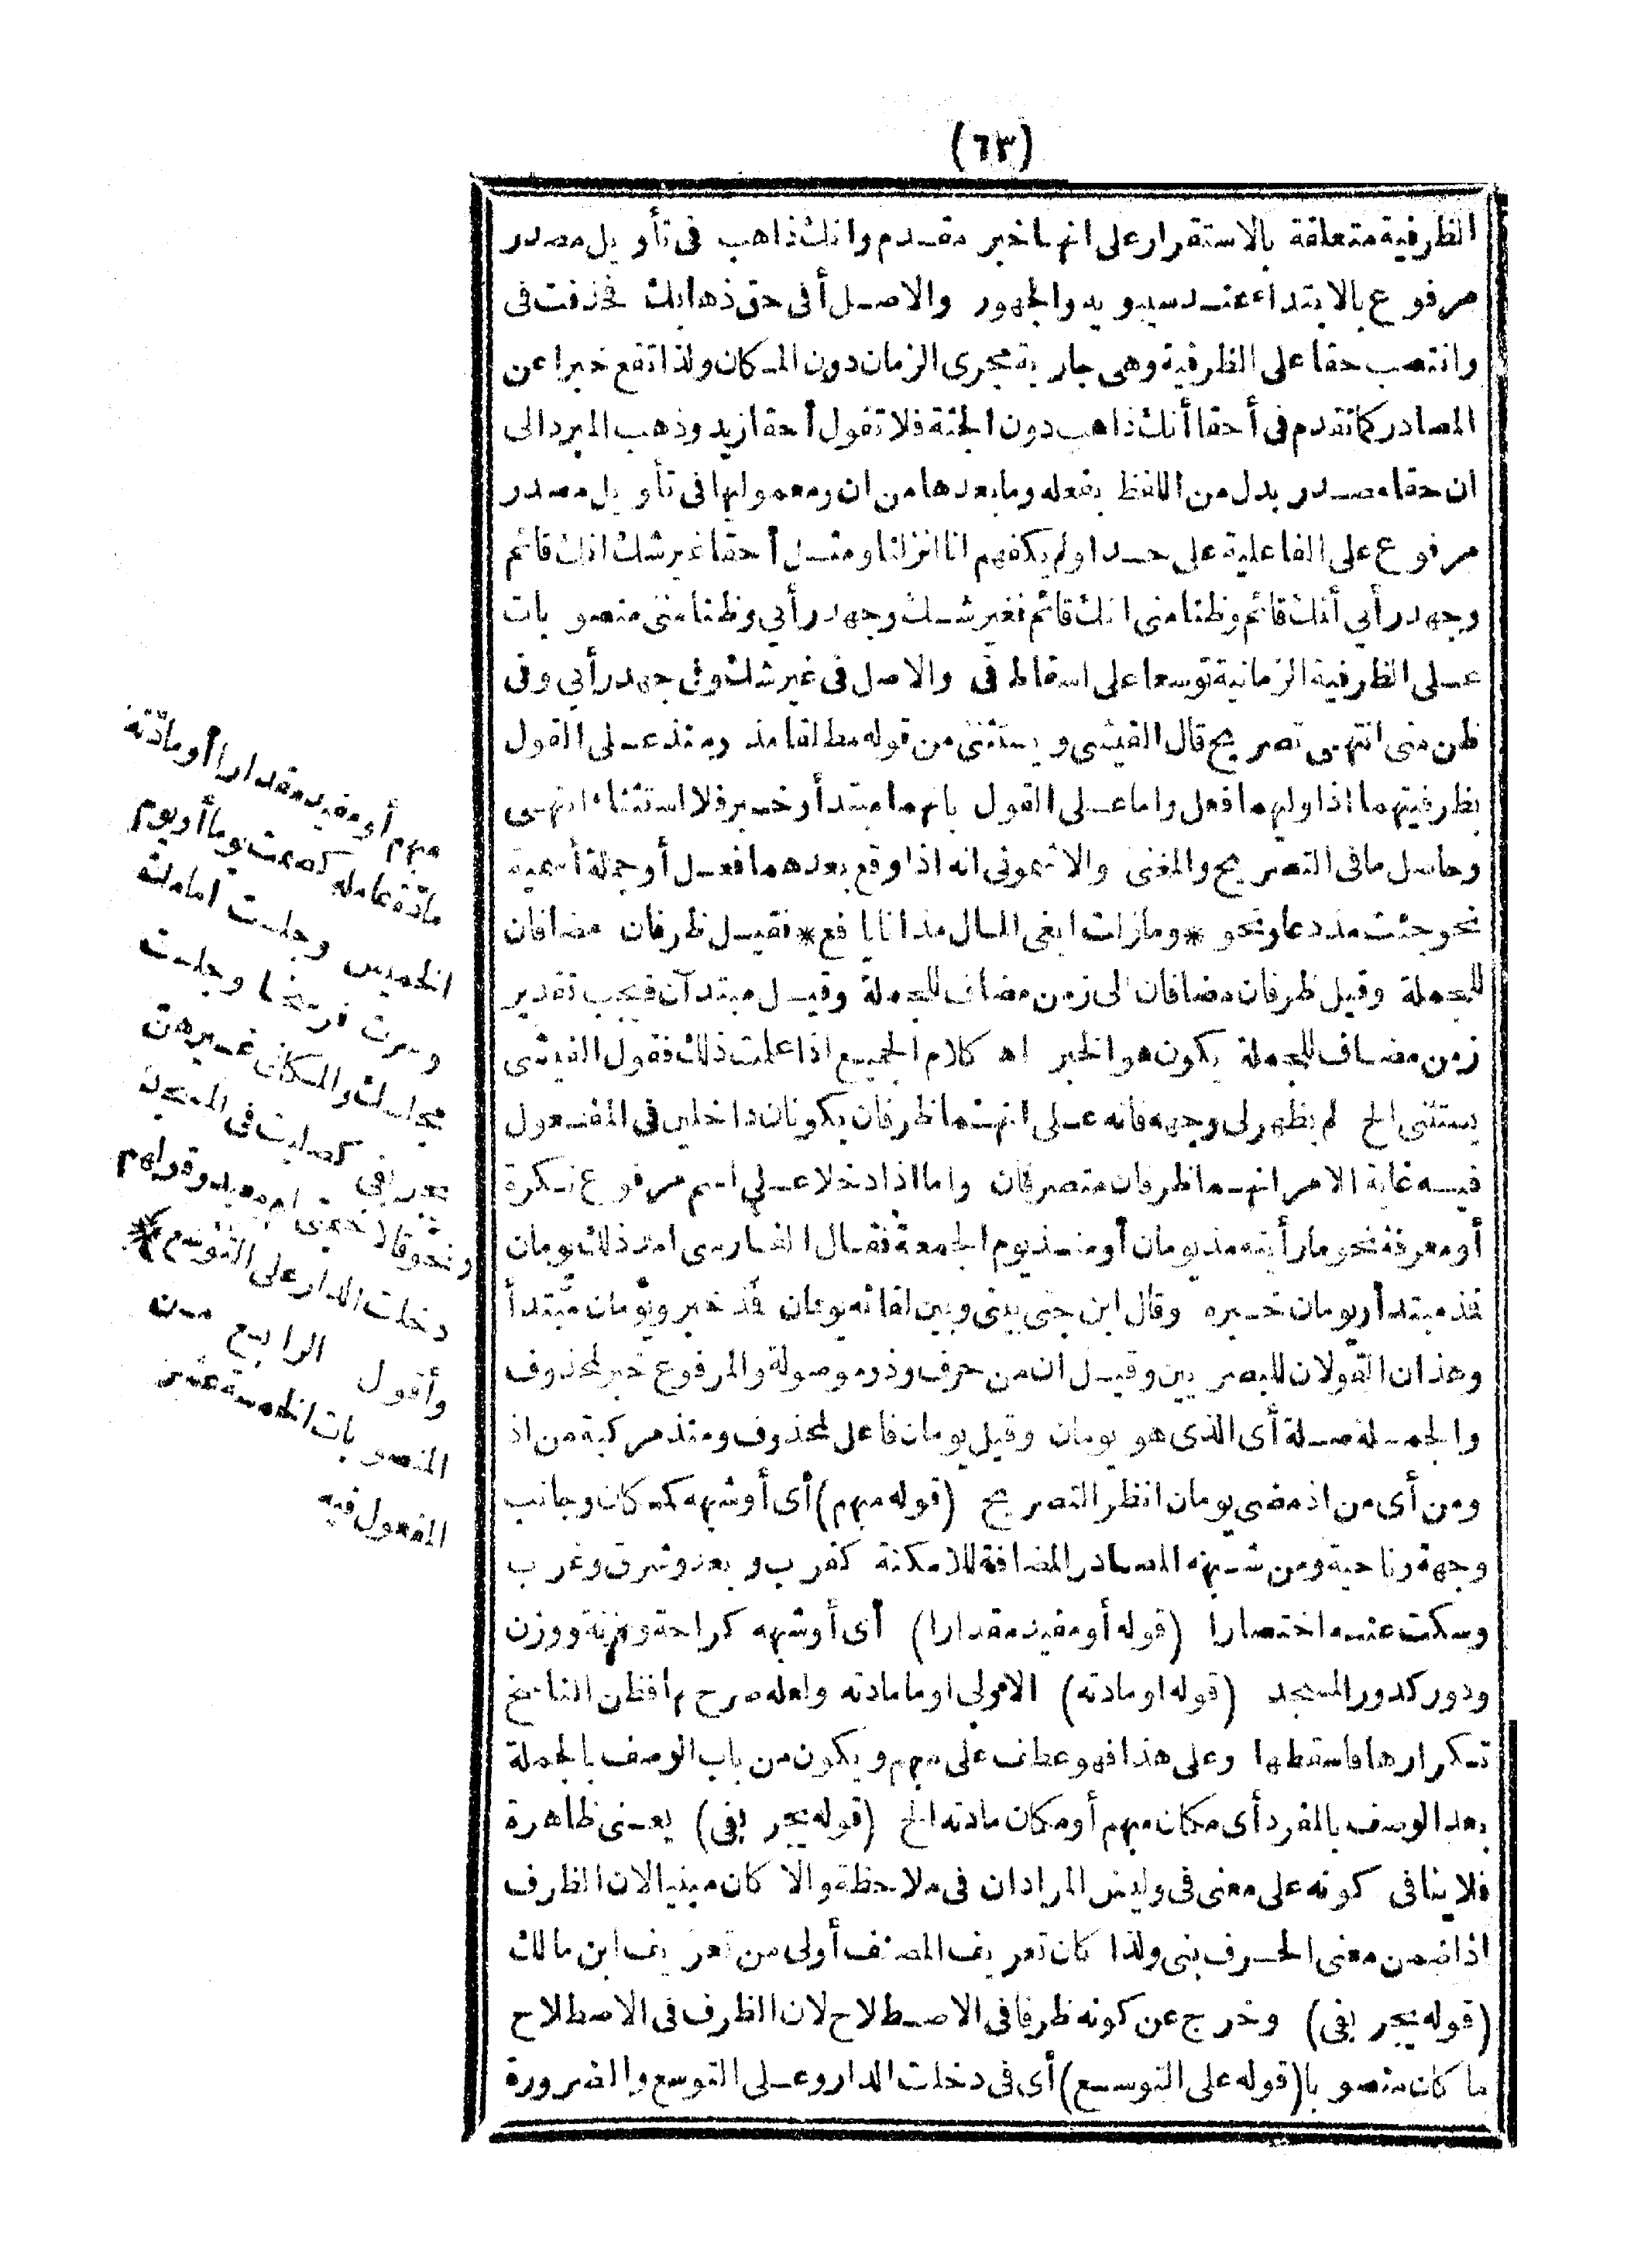 (٦٣)
الظرفية متعلقة بالاستقرار على انها خبر مقدم وانك ذاهب فى تأويل مصدر
مرفوع بالابتداء عند سيبويه والجمهور والاصل أفى حق ذهابك فحذفت فى
وانتصب حقا على الظرفية وهى جارية مجرى الزمان دون المكان ولذا تقع خبرا عن
المصادر كما تقدم فى أحقا أنك ذاهب دون الجثة فلا تقول أحقا زيد وذهب المبرد الى
ان حقا مصدر بدل من اللفظ بفعله وما بعدها من ان ومعموليها فى تأويل مصدر
مرفوع على الفاعلية على حد اولم يكفهم انا انزلنا ومثل أحقا غير شك انك قائم
وجهد رأيي أنك قائم وظنا منى انك قائم فغير شك وجهد رأيي وظنا منى منصوبات
على الظرفية الزمانية توسعا على اسقاط فى والاصل فى غير شك وفى جهد رأيي وفى
ظن منى انتهى تصريح قال الفيشى ويستثنى من قوله مطلقا مذ ومنذ على القول
بظرفيتهما اذا وليهما فعل واما على القول بانهما مبتدأ وخبر فلا استثناء انتهى
وحاصل ما فى التصريح والمغنى والاشمونى انه اذا وقع بعدهما فعل أو جملة اسمية
نحو جئت مذ دعا ونحو * وما زلت ابغى المال مذ انا يافع * فقيل ظرفان مضافان
للجملة وقيل ظرفان مضافان الى زمن مضاف للجملة وقيل مبتدآن فيجب تقدير
زمن مضاف للجملة يكون هو الخبر اه كلام الجميع اذا علمت ذلك فقول الفيشى
يستثنى الخ لم يظهر لى وجهه فانه على انهما ظرفان يكونان داخلين فى المفعول
فيه غاية الامر انهما ظرفان متصرفان واما اذا دخلا على اسم مرفوع نكرة
أو معرفة نحو ما رأيته مذ يومان أو منذ يوم الجمعة فقال الفارسى امد ذلك يومان
فمذ مبتدأ ويومان خبره وقال ابن جنى بينى وبين لقائه يومان فمذ خبر ويومان مبتدأ
وهذان القولان للبصريين وقيل ان من حرف وذو موصولة والمرفوع خبر لمحذوف
والجملة صلة أى الذى هو يومان وقيل يومان فاعل لمحذوف ومنذ مركبة من اذ
ومن أى من اذ مضى يومان انظر التصريح (قوله مبهم) أى أو شبهه كمكان وجانب
وجهة وناحية ومن شبهه المصادر المضافة للامكنة كقرب وبعد وشرق وغرب
وسكت عنه اختصارا (قوله أو مفيد مقدارا) أى أو شبهه كراحة وزنة ووزن
ودور كدور المسجد (قوله او مادته) الاولى او ما مادته ولعله صرح بما فظن الناسخ
تكرارها فاسقطها وعلى هذا فهو عطف على مبهم ويكون من باب الوصف بالجملة
بعد الوصف بالمفرد أى مكان مبهم أو مكان مادته الخ (قوله يجر بفى) يعنى ظاهرة
فلا ينافى كونه على معنى فى وليس المراد ان فى ملاحظة والا كان مبنيا لان الظرف
اذا ضمن معنى الحرف بنى ولذا كان تعريف المصنف أولى من تعريف ابن مالك
(قوله يجر بفى) وخرج عن كونه ظرفا فى الاصطلاح لان الظرف فى الاصطلاح
ما كان منصوبا (قوله على التوسع) أى فى دخلت الدار وعلى التوسع والضرورة
مبهم أو مفيد مقدارا أو مادّته
مادّة عامله كصمت يوما أو يوم
الخميس وجلست امامك
وسرت فرسخا وجلست
مجلسك والمكانى غيرهن
يجر بفى كصليت فى المسجد
ونحو قالا خيمتى ام معبد وقولهم
دخلت الدار على التوسع *
وأقول الرابع من
المنصوبات الخمسة عشر
المفعول فيه